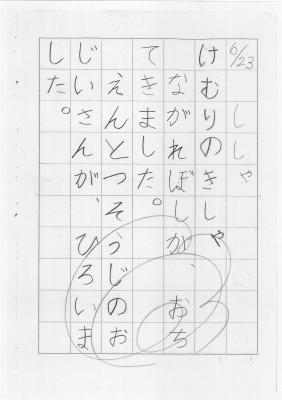 6/23 ししゃ
けむりのきしゃ
ながれぼしが、おち
てきました。
えんとつそうじのお
じいさんが、ひろいま
した。